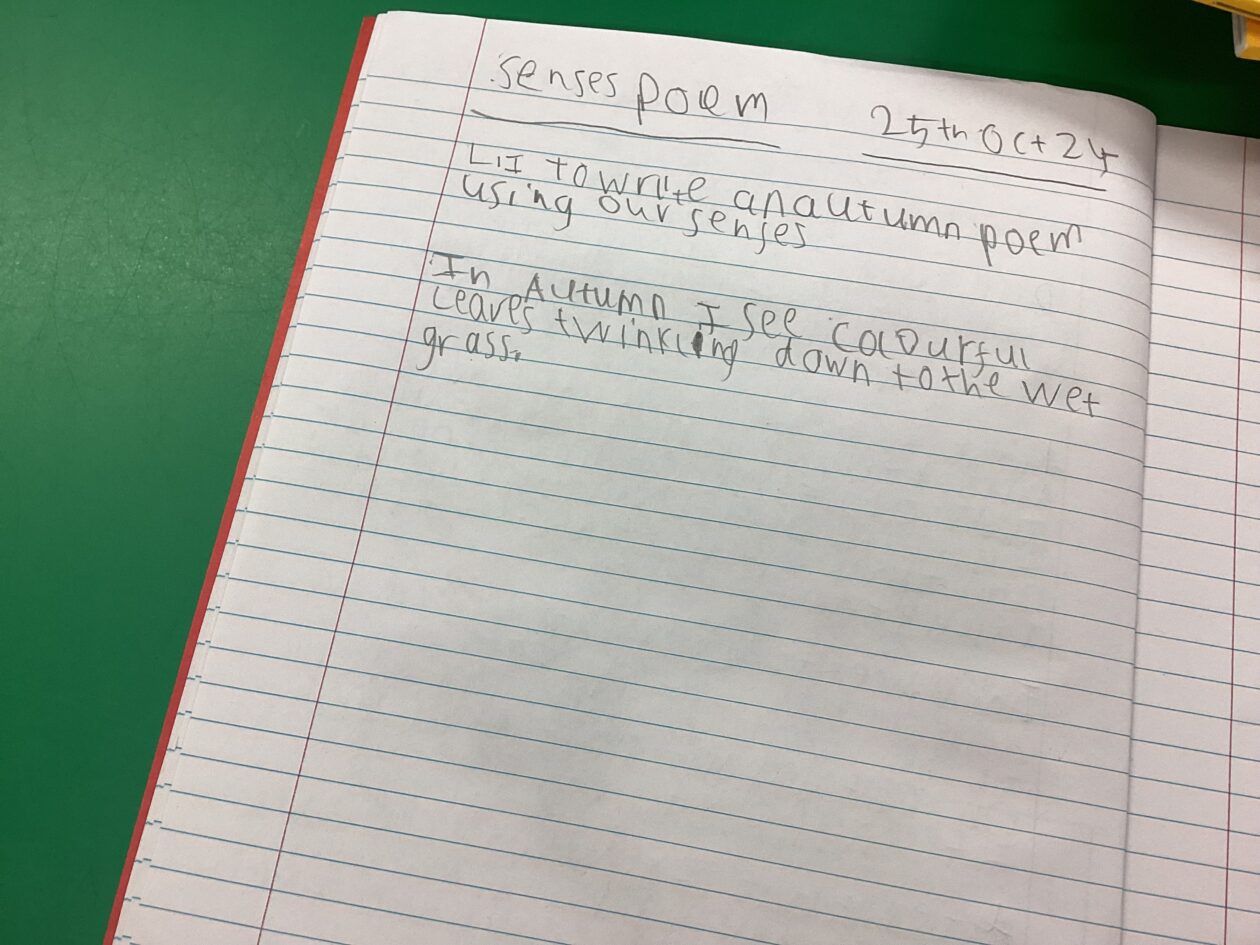 senses poem
25th Oct 24
L.I to write an autumn poem
using our senses
In Autumn I see colourful
leaves twinkling down to the wet
grass.